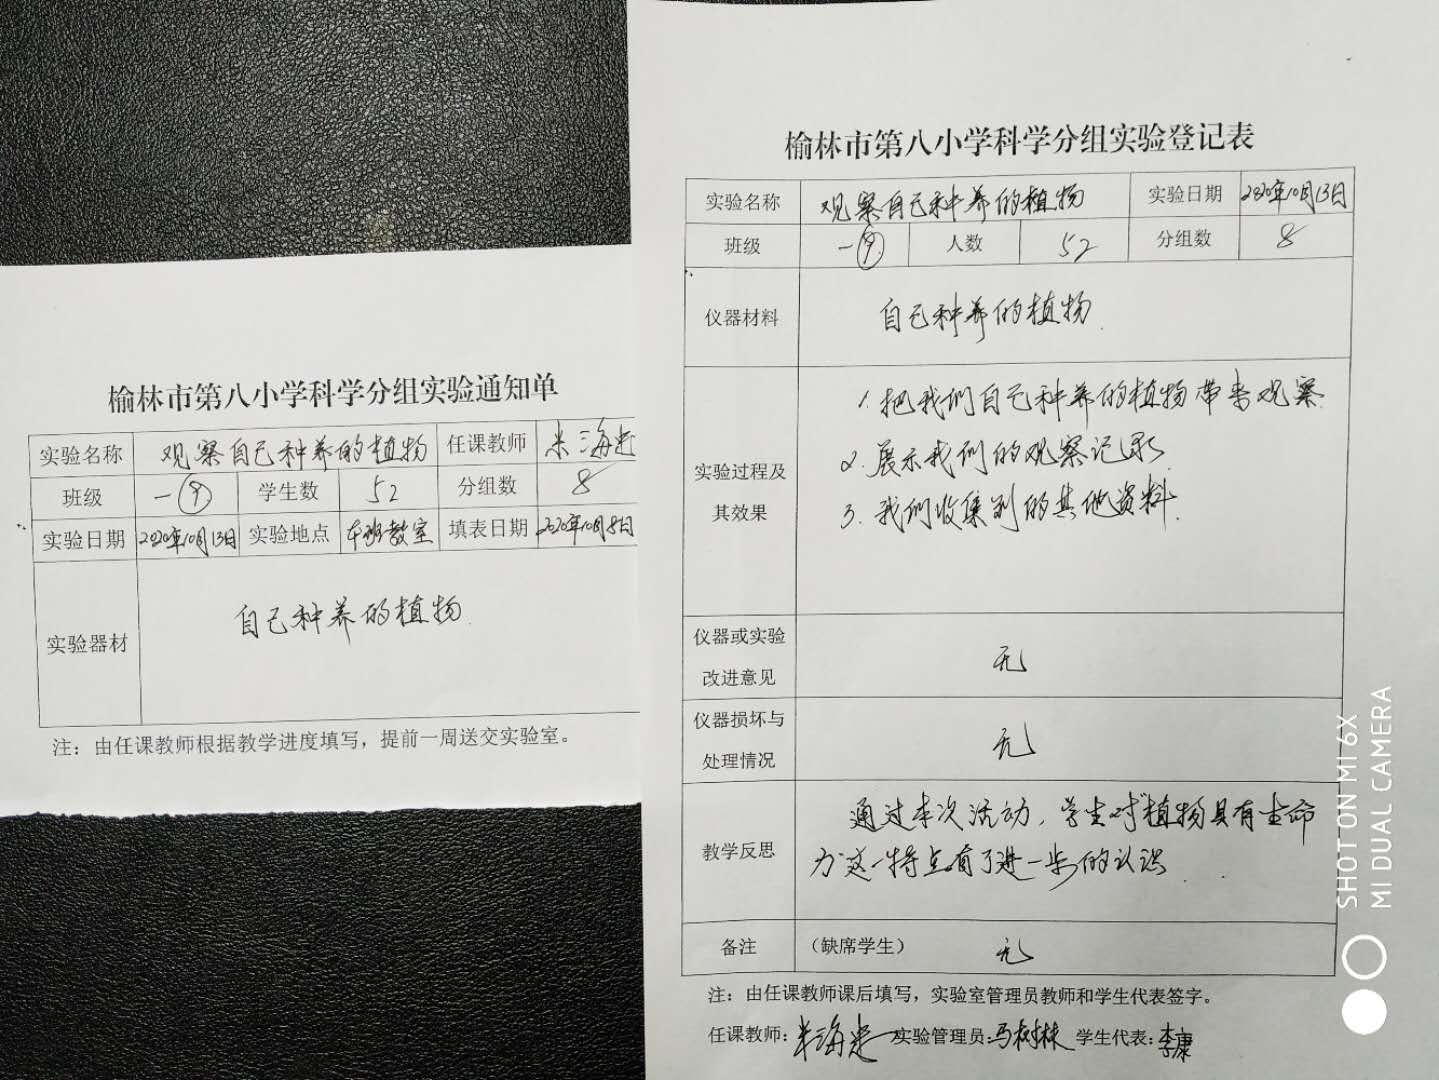 榆林市第八小学科学分组实验通知单
实验名称 观察自己种养的植物 任课教师 米海
班级 一(9) 学生数 52 分组数 8
实验日期 2020年10月13日 实验地点 本班教室 填表日期 2020年10月8日
实验器材 自己种养的植物
注：由任课教师根据教学进度填写，提前一周送交实验室。
榆林市第八小学科学分组实验登记表
实验名称 观察自己种养的植物 实验日期 2020年10月13日
班级 一(9) 人数 52 分组数 8
仪器材料 自己种养的植物.
实验过程及其效果
1. 把我们自己种养的植物带来观察.
2. 展示我们的观察记录.
3. 我们收集到的其他资料.
仪器或实验
改进意见 无
仪器损坏与
处理情况 无
教学反思
通过本次活动，学生对"植物具有生命
力"这一特点有了进一步的认识.
备注 （缺席学生） 无
注：由任课教师课后填写，实验室管理员教师和学生代表签字。
任课教师: 米海 实验管理员: 马树林 学生代表: 李康
SHOT ON MI 6X
MI DUAL CAMERA